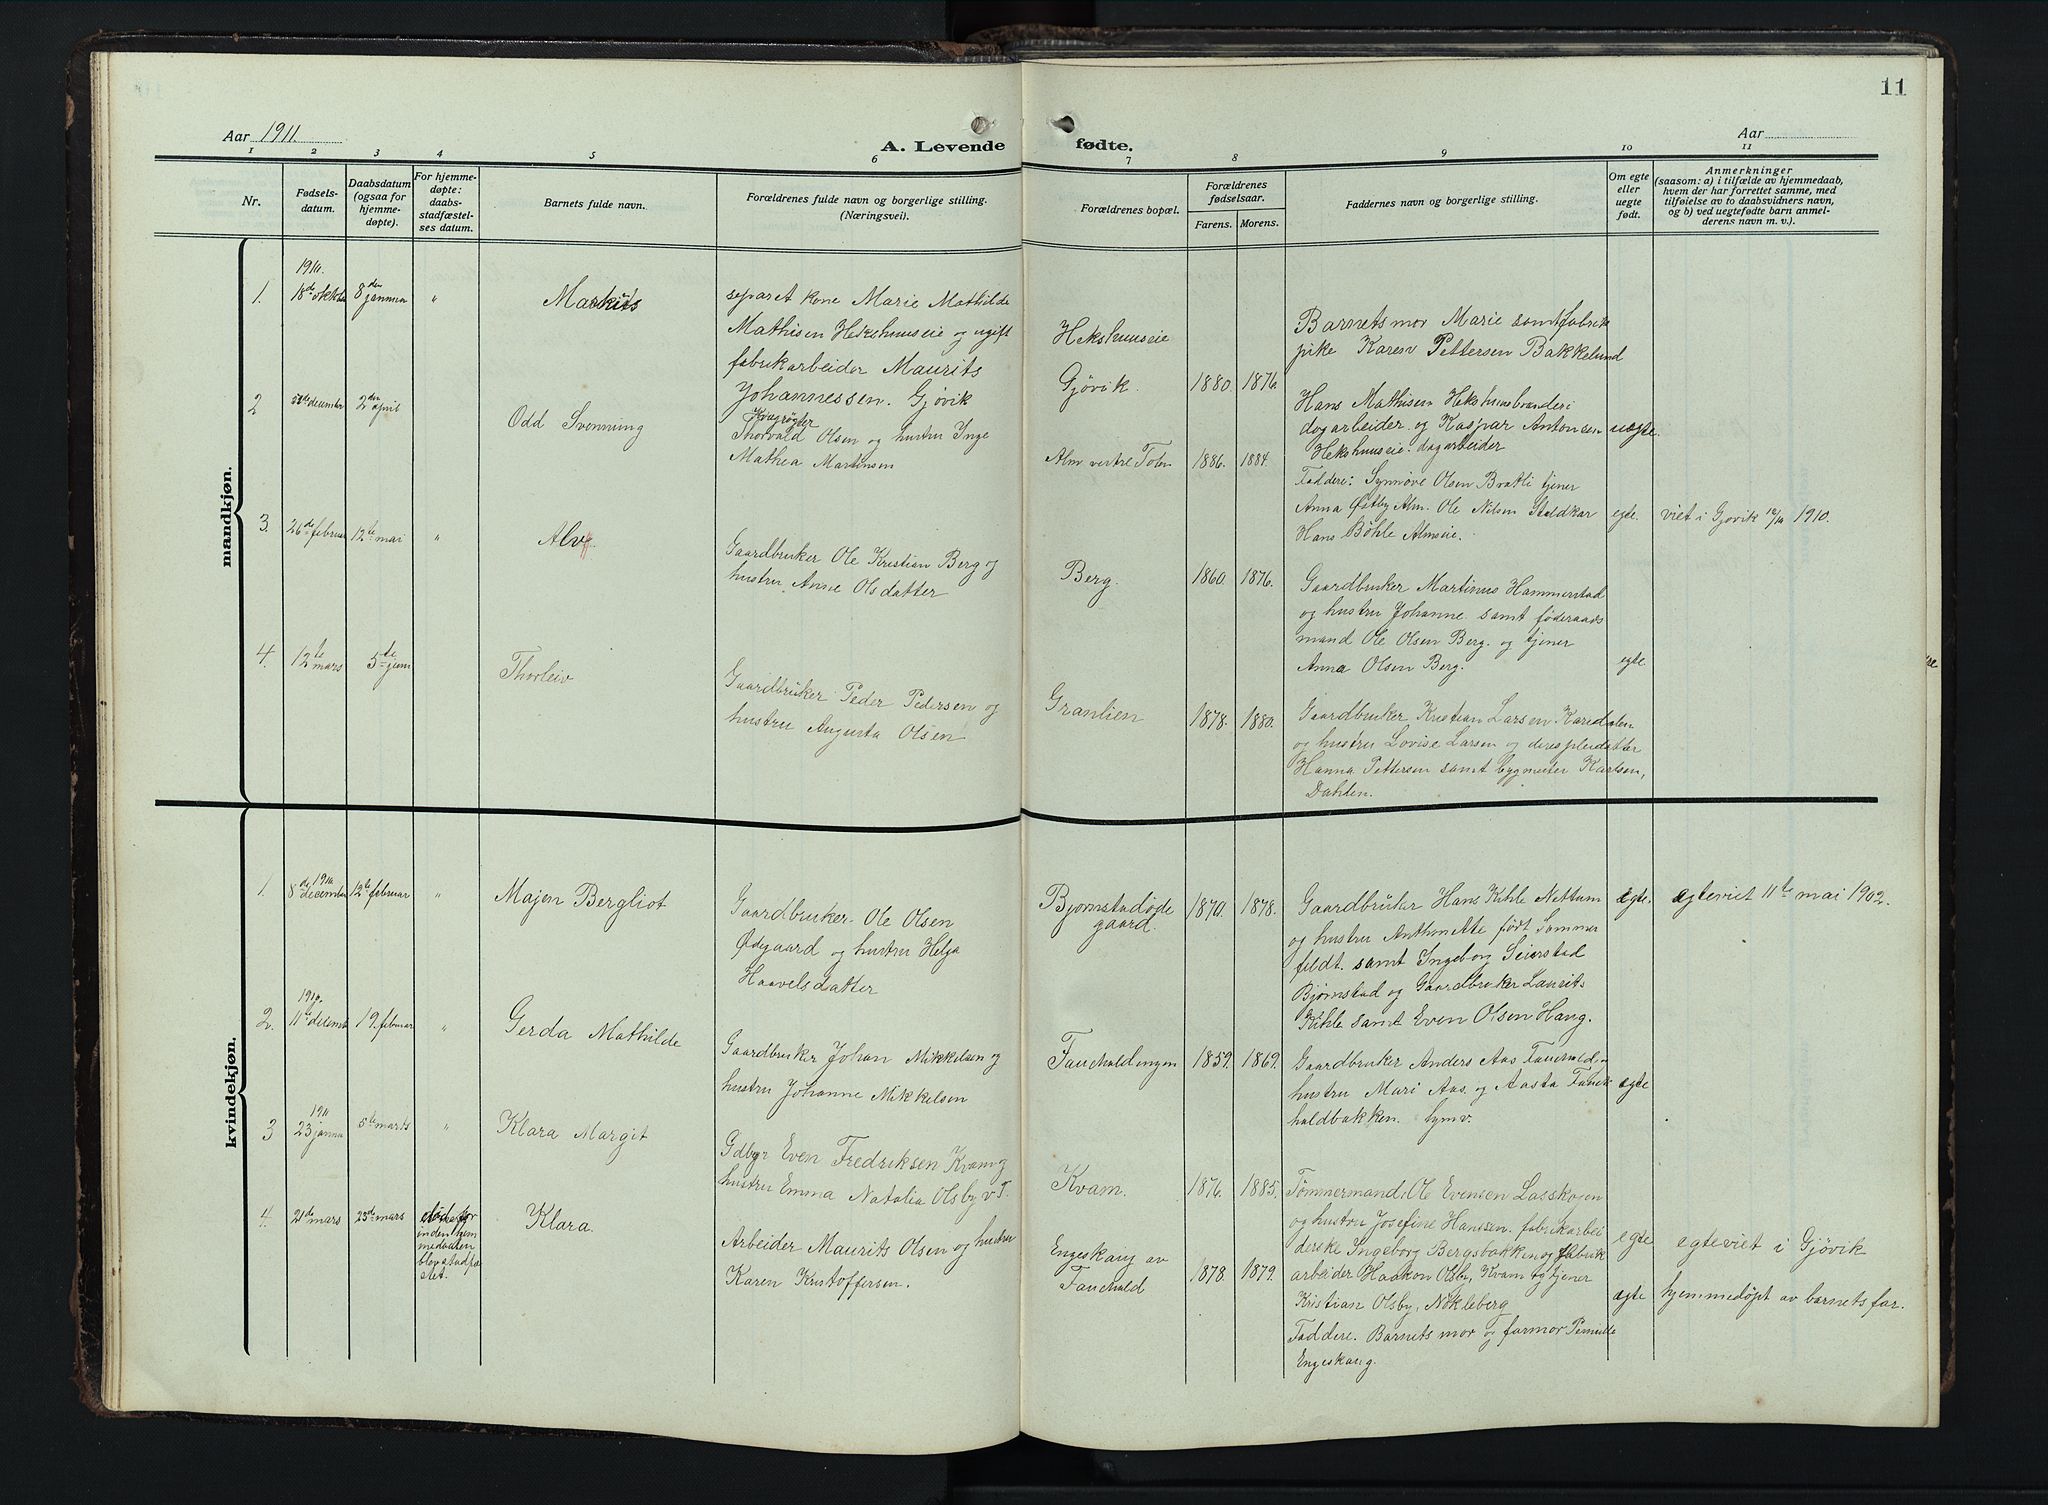 11
Aar 1911.
A. Levende fødte.
Aar
1 2 3 4 5 6 7 8 9 10 11
Nr.
Fødsels-
datum.
Daabsdatum
(ogsaa for
hjemme-
døpte).
For hjemme-
døpte:
daabs-
stadfæstel-
ses datum.
Barnets fulde navn.
Forældrenes fulde navn og borgerlige stilling.
(Næringsvei).
Forældrenes bopæl.
Forældrenes
fødselsaar.
Farens. Morens.
Faddernes navn og borgerlige stilling.
Om egte
eller
uegte
født.
Anmerkninger
(saasom: a) i tilfælde av hjemmedaab,
hvem der har forrettet samme, med
tilføielse av to daabsvidners navn,
og b) ved uegtefødte barn anmel-
derens navn m. v.).
mandkjøn.
1.
1910.
18de oktbr
8den januar
"
separet kone Marie Mathilde
Mathisen Hekshuuseie og ugift
fabrikarbeider Maurits
Johannessen. Gjøvik
Hekshuuseie
Gjövik. 1880. 1876.
Barnets mor Marie samt fabrik
pike Karen Pettersen Bakkelund
Hans Mathisen
dagarbeider og Kaspar Antonsen
Hekshuuseie. dagarbeider
uegte.
2
december
2den april
Odd Svennung
Thorvald Olsen og hustru Inge
Mathea Martinsen
Alm vestre Toten 1886. 1884.
Faddere: Synnøve Olsen Bratli tjener
Anna Østby Alm. Ole Nilsen
Hans Böhle Almseie.
egte.
viet i Gjøvik 1910.
3.
26de februar
12te mai
"
Alv.
Gaardbruker Ole Kristian Berg og
hustru Anne Olsdatter
Berg. 1860. 1876.
Gaardbruker Martinus Hammerstad
og hustru Johanne samt føderaads
mand Ole Olsen Berg. og tjener
Anna Olsen Berg.
egte
4.
12te mars
5te juni
Thorleiv
Gaardbruker Peder Pedersen og
hustru Augusta Olsen
Granlien 1878. 1880.
Gaardbruker Kristian Larsen
og hustru Lovise Larsen og deres pleidatter
Hanna Pettersen samt bygmester Karlsen,
Dahlen.
kvindekjøn.
1.
1910
8de december
12te februar
"
Majen Bergliot
Gaardbruker Ole Olsen
Ødegaard og hustru Helga
Haavelsdatter
Bjørnstadøde
gaard. 1870. 1878.
Gaardbruker Hans Kihle Nettum
og hustru Anthonette født Sommer
feldt. samt Ingeborg Seierstad
Bjørnstad og Gaardbruker Laurits
Kihle samt Even Olsen Haug.
egte.
egteviet 11te mai 1902.
2.
1910.
11te decemb
19. februar
"
Gerda Mathilde
Gaardbruker Johan Mikkelsen og
hustru Johanne Mikkelsen
Fauchaldengen 1859. 1869.
Gaardbruker Anders Aas
hustru Mari Aas. og Aasta Fauc
haldbakken. hjmv.
egte
3
1911
23 janua
5te marts
"
Klara Margit
Gdbgr Even Fredriksen Kvam og
hustru Emma Natalia Olsby v T.
Kvam. 1876. 1885.
Tømmermand Ole Evensen Lasskogen
og hustru Josefine Hansen. fabrikarbei
derske Ingeborg Bergsbakken og fabrik
arbeider Haakon Olsby, Kvam og tjener
Kristian Olsby, Nøkleberg
egte
egteviet i Gjövik
4.
21de mars
23de mars
død for
inden hjem
medaaben
blev stadfæ
stet.
Klara.
Arbeider Maurits Olsen og hustru
Karen Kristoffersen.
Engeskaug av
Fauchald 1878. 1879.
Faddere. Barnets mor og farmor Pernille
Engeskaug.
egte
hjemmedøpt av barnets far.